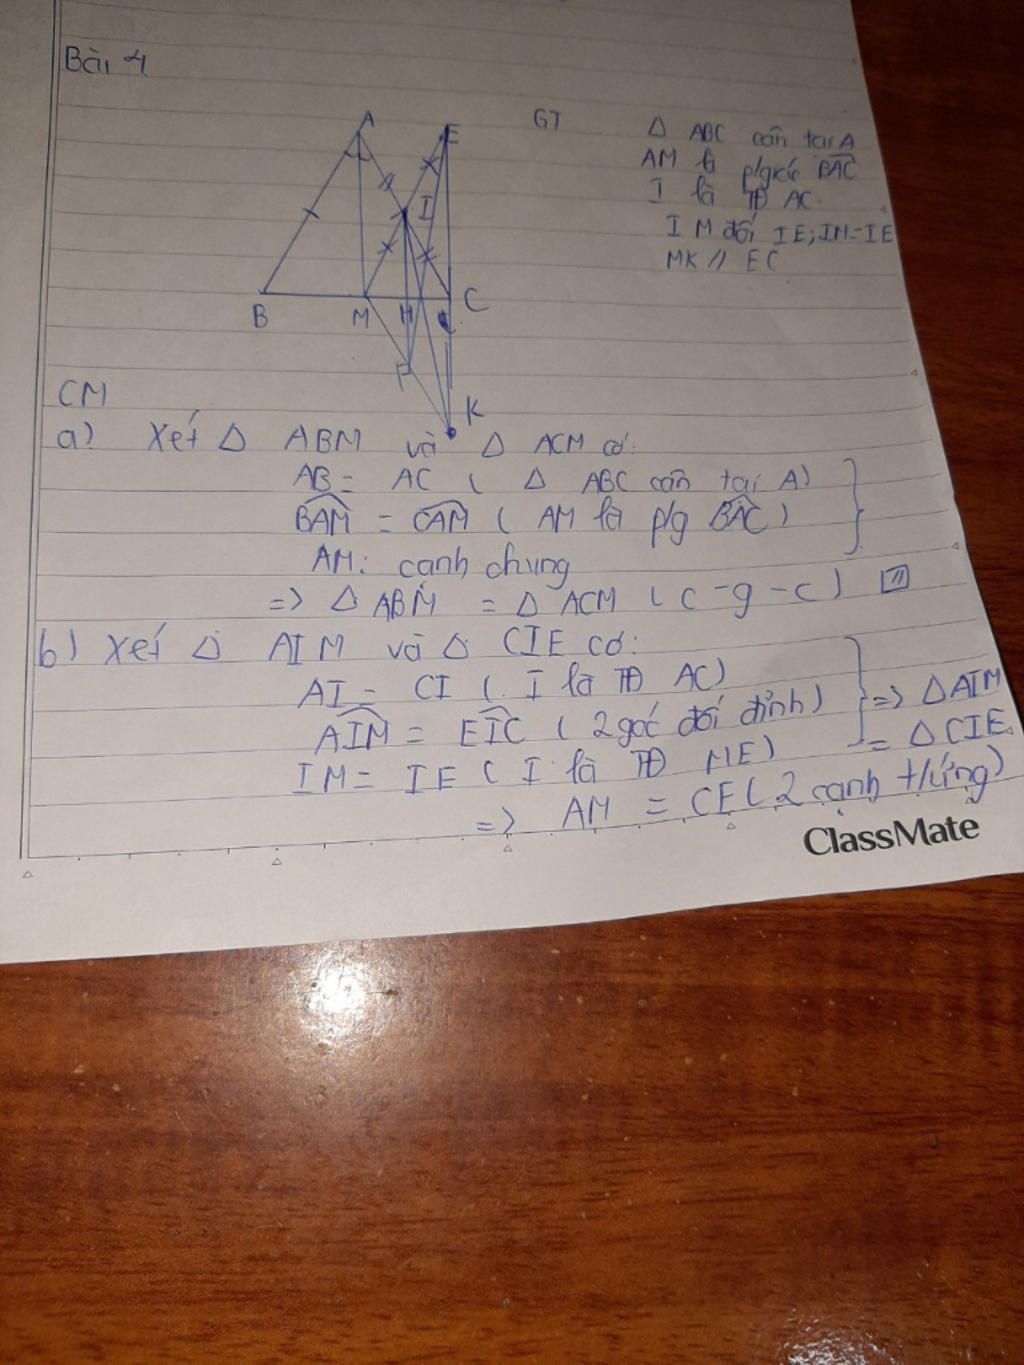 Bài 4
A
E
I
B
M
H
C
F
K
GT
Δ ABC cân tại A
AM là p/giác BAC
I là TĐ AC
IM đối IE; IM=IE
MK // EC
CM
a) Xét Δ ABM và Δ ACM có:
AB = AC ( Δ ABC cân tại A)
BAM = CAM ( AM là p/g BAC )
AM: cạnh chung
=> Δ ABM = Δ ACM ( c-g-c)
b) Xét Δ AIM và Δ CIE có:
AI = CI ( I là TĐ AC)
AIM = EIC ( 2 góc đối đỉnh) => ΔAIM
IM = IE ( I là TĐ ME) = ΔCIE
=> AM = CE ( 2 cạnh t/ứng)
ClassMate